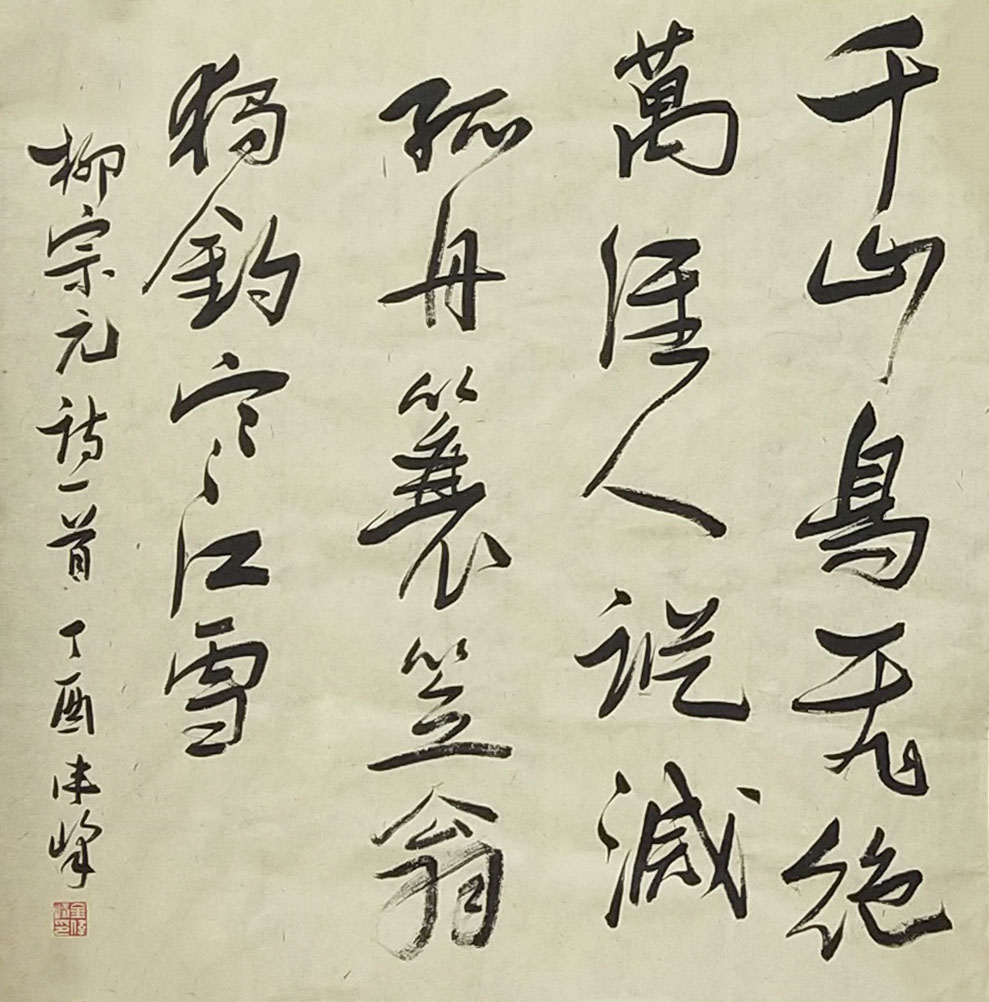 千山鳥飛絶
萬徑人蹤滅
孤舟簑笠翁
獨釣寒江雪
柳宗元詩一首 丁酉 峰